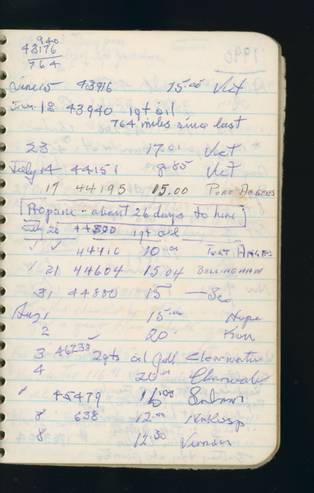 940
43176
764
June 15 43916 15.00 Vict
June 18 43940 1qt oil
764 miles since last
23 17.01 Vict
July 14 44151 8.85 Vict
17 44195 15.00 Port Angeles
Propane - about 26 days to here
July 20 1qt oil
44416 10.00 Port Angeles
21 44604 15.04 Bellingham
31 44880 15
Aug 1 15.00 Hope
2 20
3 2qts oil Clearwater
4 20.00 Clearwater
45479 15.00 Salmo
8 638 12.00 Nakusp
8 12.30 Vernon